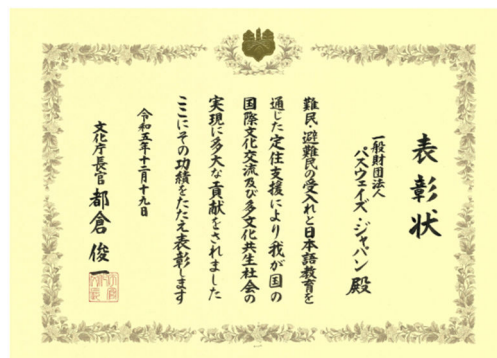 表彰状
一般財団法人
パスウェイズ・ジャパン 殿
難民・避難民の受入れと日本語教育を
通じた定住支援により我が国の
国際文化交流及び多文化共生社会の
実現に多大な貢献をされました
ここにその功績をたたえ表彰します
令和五年十二月十九日
文化庁長官 都倉俊一